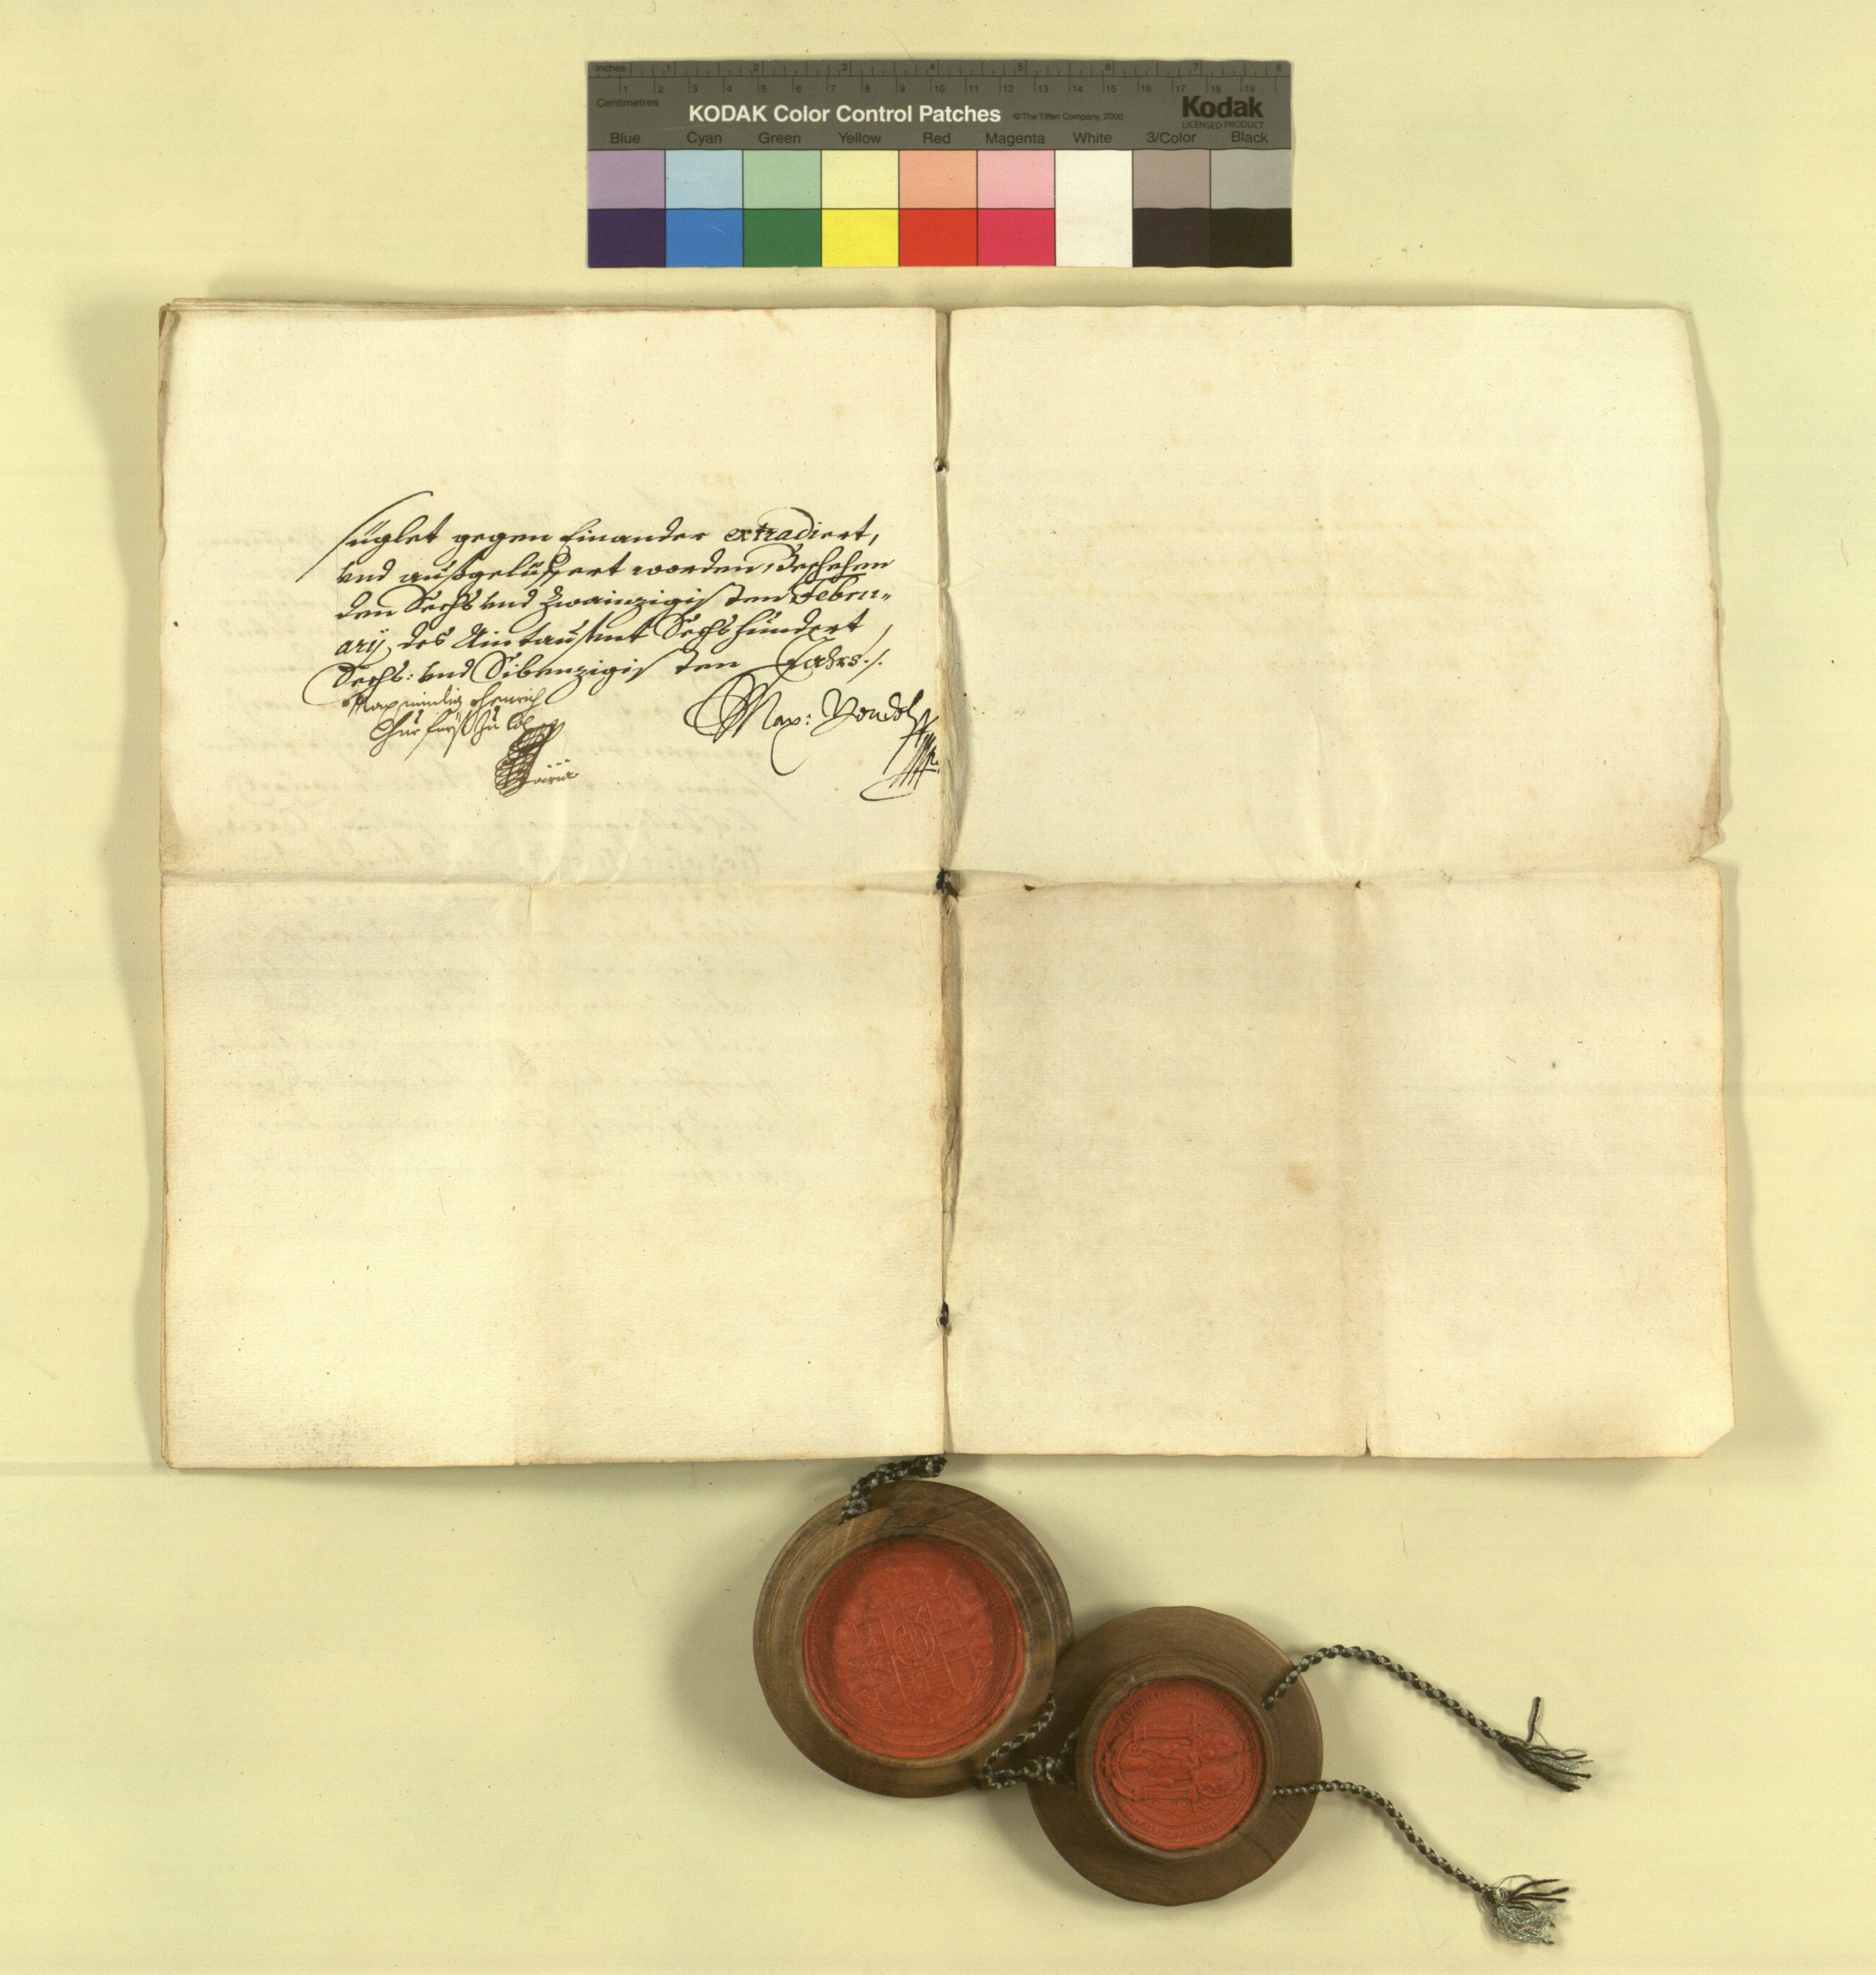 Inches 1 2 3 4 5 6 7 8
1 2 3 4 5 6 7 8 9 10 11 12 13 14 15 16 17 18 19
Centimetres
KODAK Color Control Patches © The Tiffen Company, 2000 Kodak
LICENSED PRODUCT
Blue Cyan Green Yellow Red Magenta White 3/Color Black
süglet gegen Einander extradiert,
vnd außgelüffert worden, Beschehen
den Sechs vnd Zwainzigisten Febru-
arÿ, des Aintausent Sechshundert
Sechs: vnd Sibenzigisten Jahrs./.
Maximilig Henrich
Churfürst zu Cöln
Max: